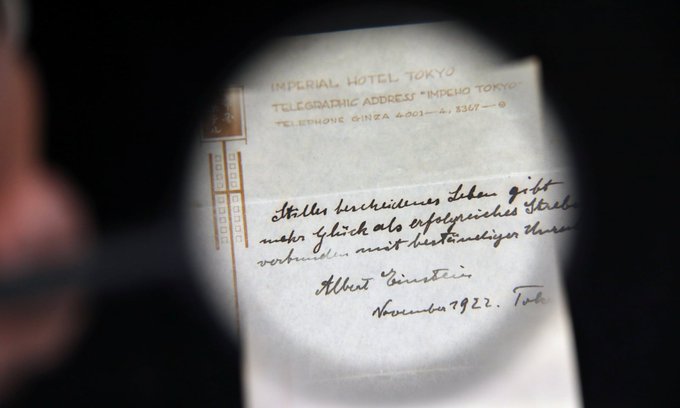 IMPERIAL HOTEL TOKYO
TELEGRAPHIC ADDRESS "IMPEHO TOKYO
TELEPHONE GINZA 4001—4, 8367—9
Stilles bescheidenes Leben gibt
mehr Glück als erfolgreiches Strebe
verbunden mit beständiger Unru
Albert Einstein
November 1922. Tok